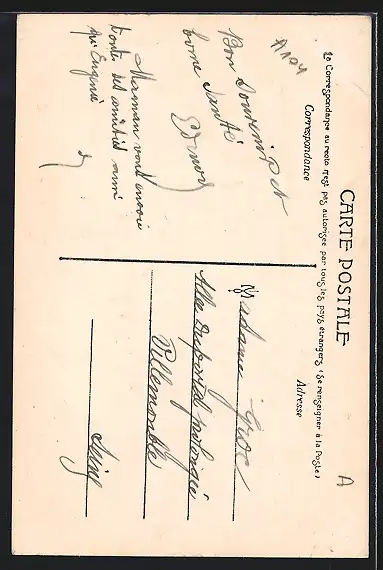 CARTE POSTALE
La Correspondance au recto n'est pas autorisée par tous les pays étrangers (Se renseigner à la Poste)
Correspondance
Adresse
A
Bon souvenir et
bonne santé
Maman vous envoie
toutes ses amitiés ainsi
qu'Eugénie
Madame Groc
Allée
Villemomble
Seine